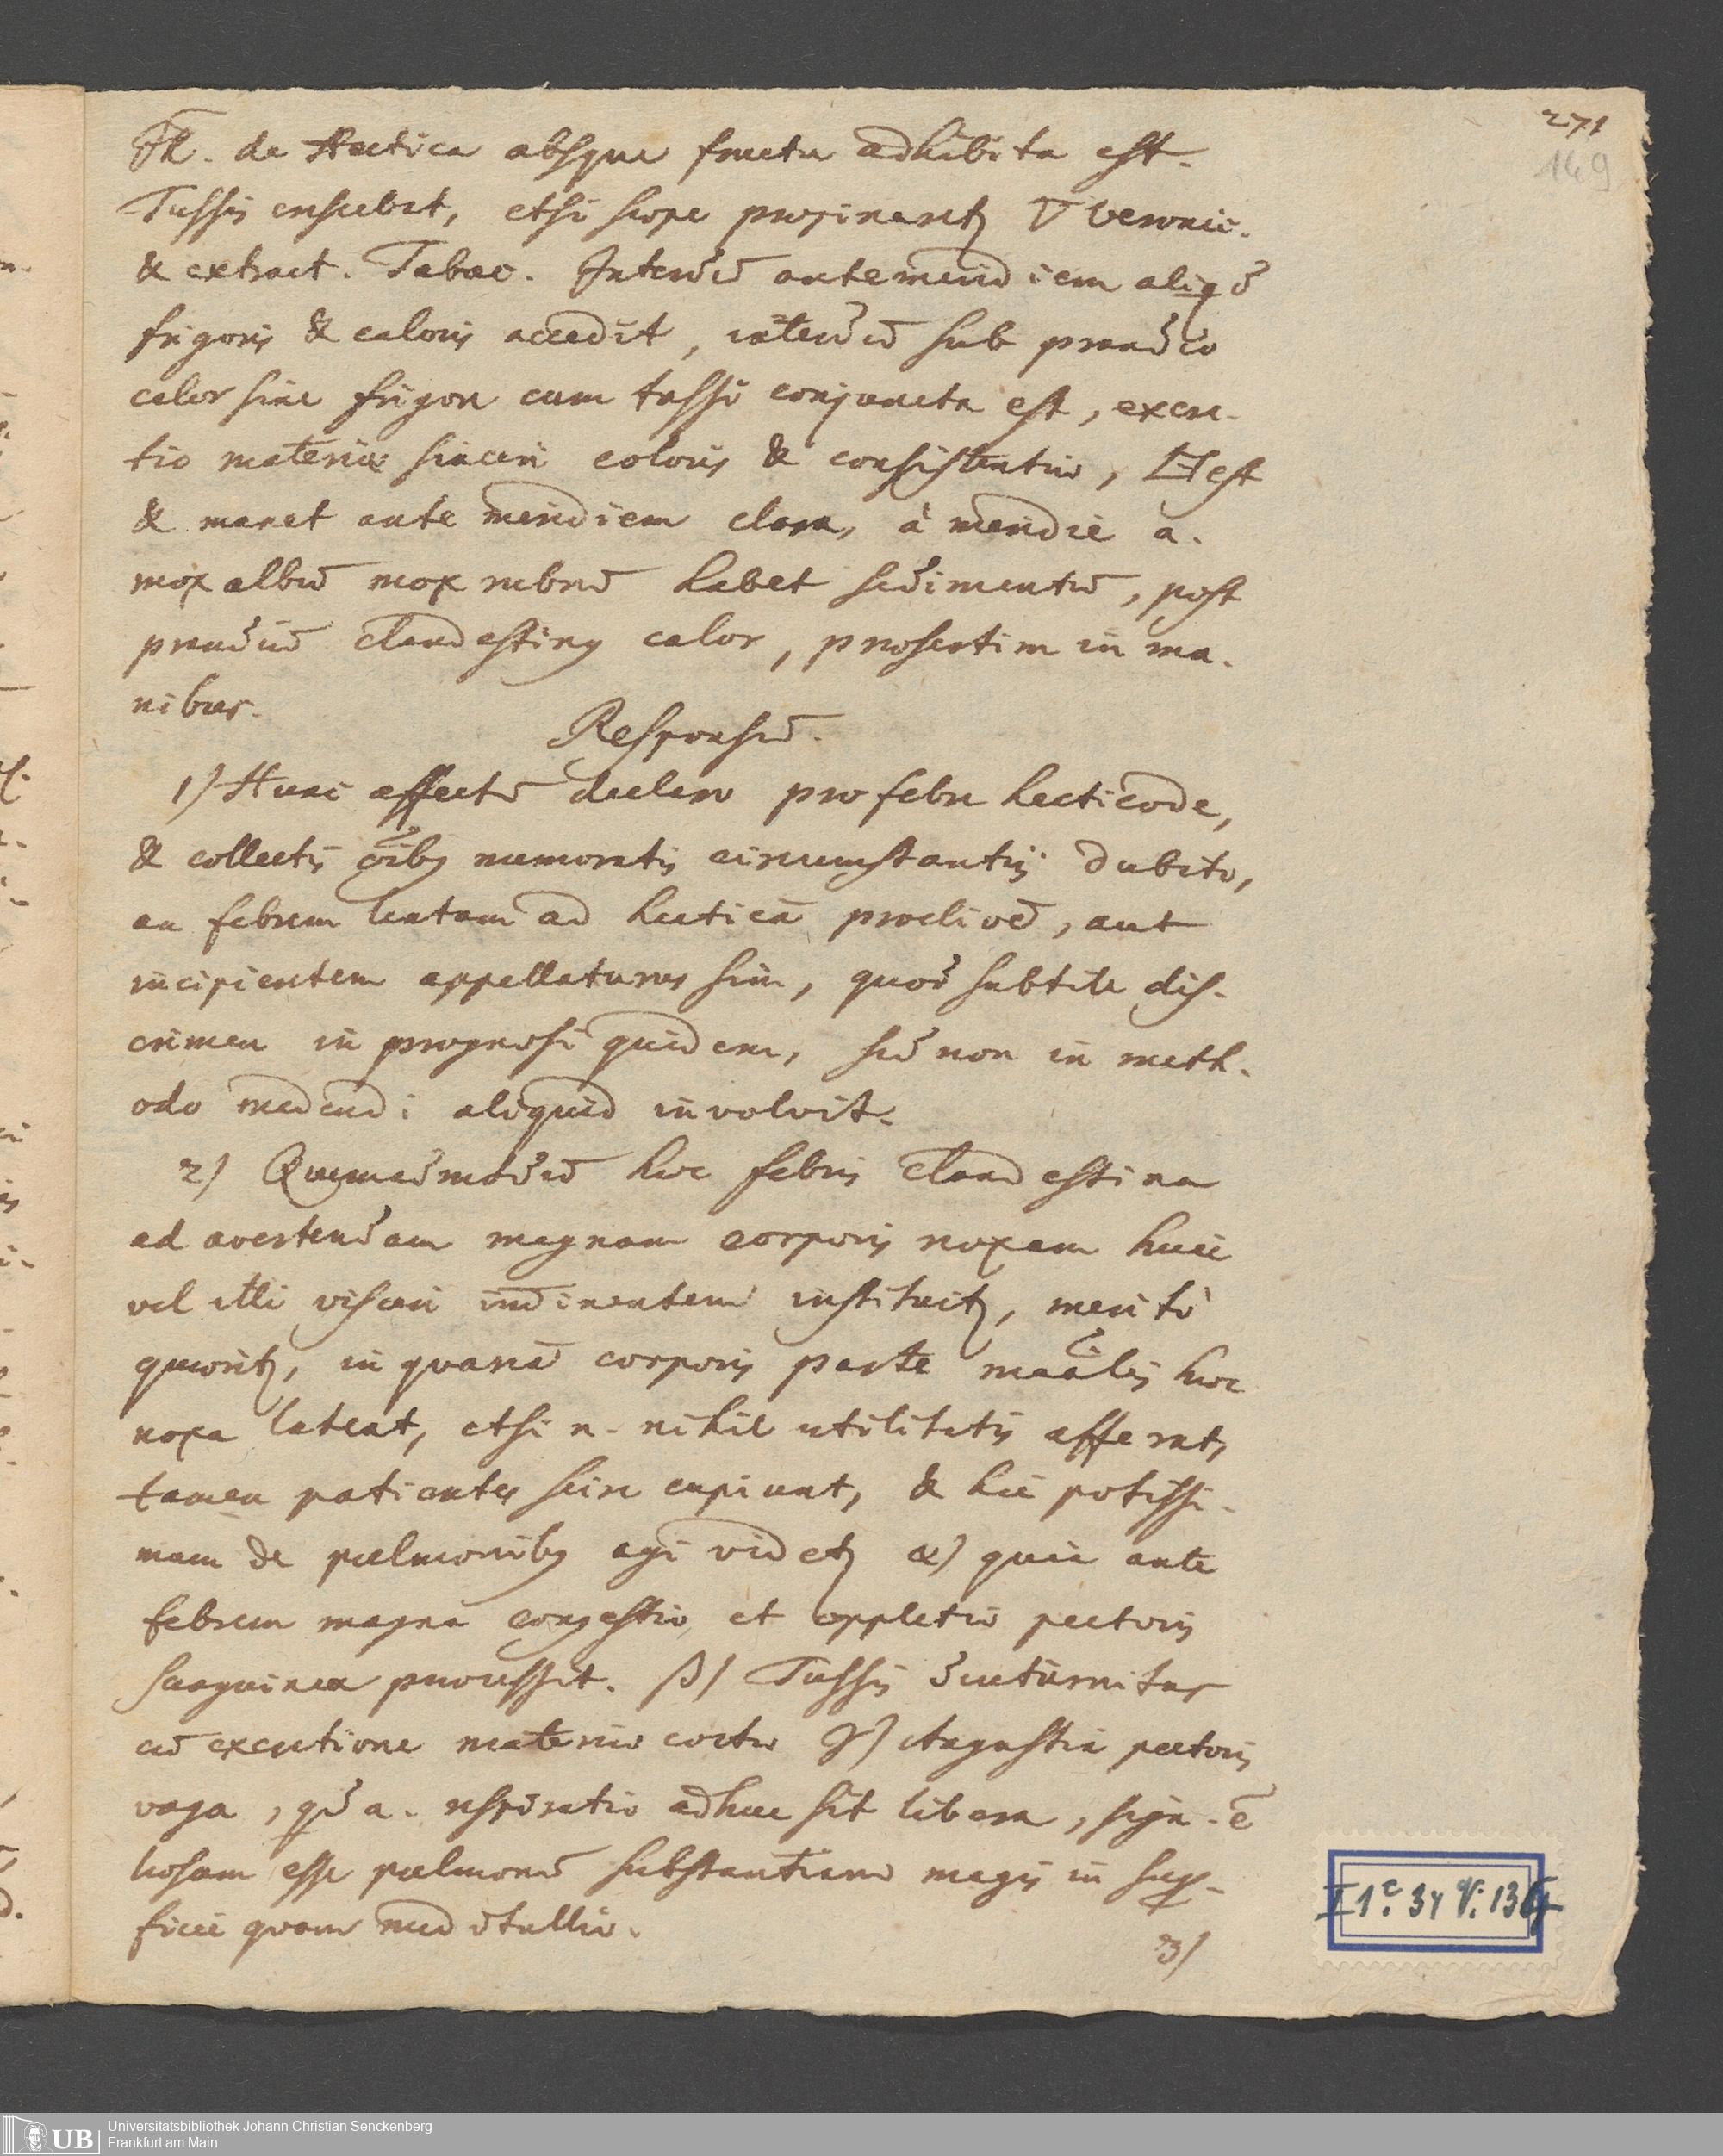 271
149
Th. de Hectica absque fructu adhibita est.
Tussis crescebat, etsi saepe propinaretȝ ▽ Veronic.
& extract. Tabac. Interdū antemeridiem aliqd
frigoris & caloris accedit, interdū sub prandio
calor sine frigore cum tussi conjuncta est, excre-
tio materiae sinceri coloris & consistentiae, est
& manet ante meridiem clara, à meridie a.
mox albū mox rubrū habet sedimentū, post
prandiū clandestinꝰ calor, praesertim in ma-
nibus.
Responsū.
1) Hunc affectū declaro pro febre hecticode,
& collectis oībꝰ memoratis circumstantiis dubito,
an febrem lentam ad hecticā proclivē, aut
incipientem appellaturus sim, quod subtile dis-
crimen in prognosi quidem, sed non in meth-
odo medendi aliquid involvit.
2) Quemadmodū haec febris clandestina
ad avertendam magnam corporis noxam huic
vel illi visceri inditnentem instituitȝ, meritò
quaeritȝ, in quanā corporis parte maālis haec
noxa lateat, etsi n. nihil utilitatis afferat,
tamen patientes scire cupiunt, & hic potissi-
mum de pulmonibꝰ agi videtȝ α) quia ante
febrem magna congestio et oppletio pectoris
sanguinea praecessit. β) Tussis diuturnitas
cū excretione materiae coctae γ) Angustia pectoris
vaga, qd a. respiratio adhuc sit libera, sign. ē
laesam esse pulmonū substantiam magis in super-
ficie quam meditullio.
3)
I 1c. 34 V. 136
UB
Universitätsbibliothek Johann Christian Senckenberg
Frankfurt am Main